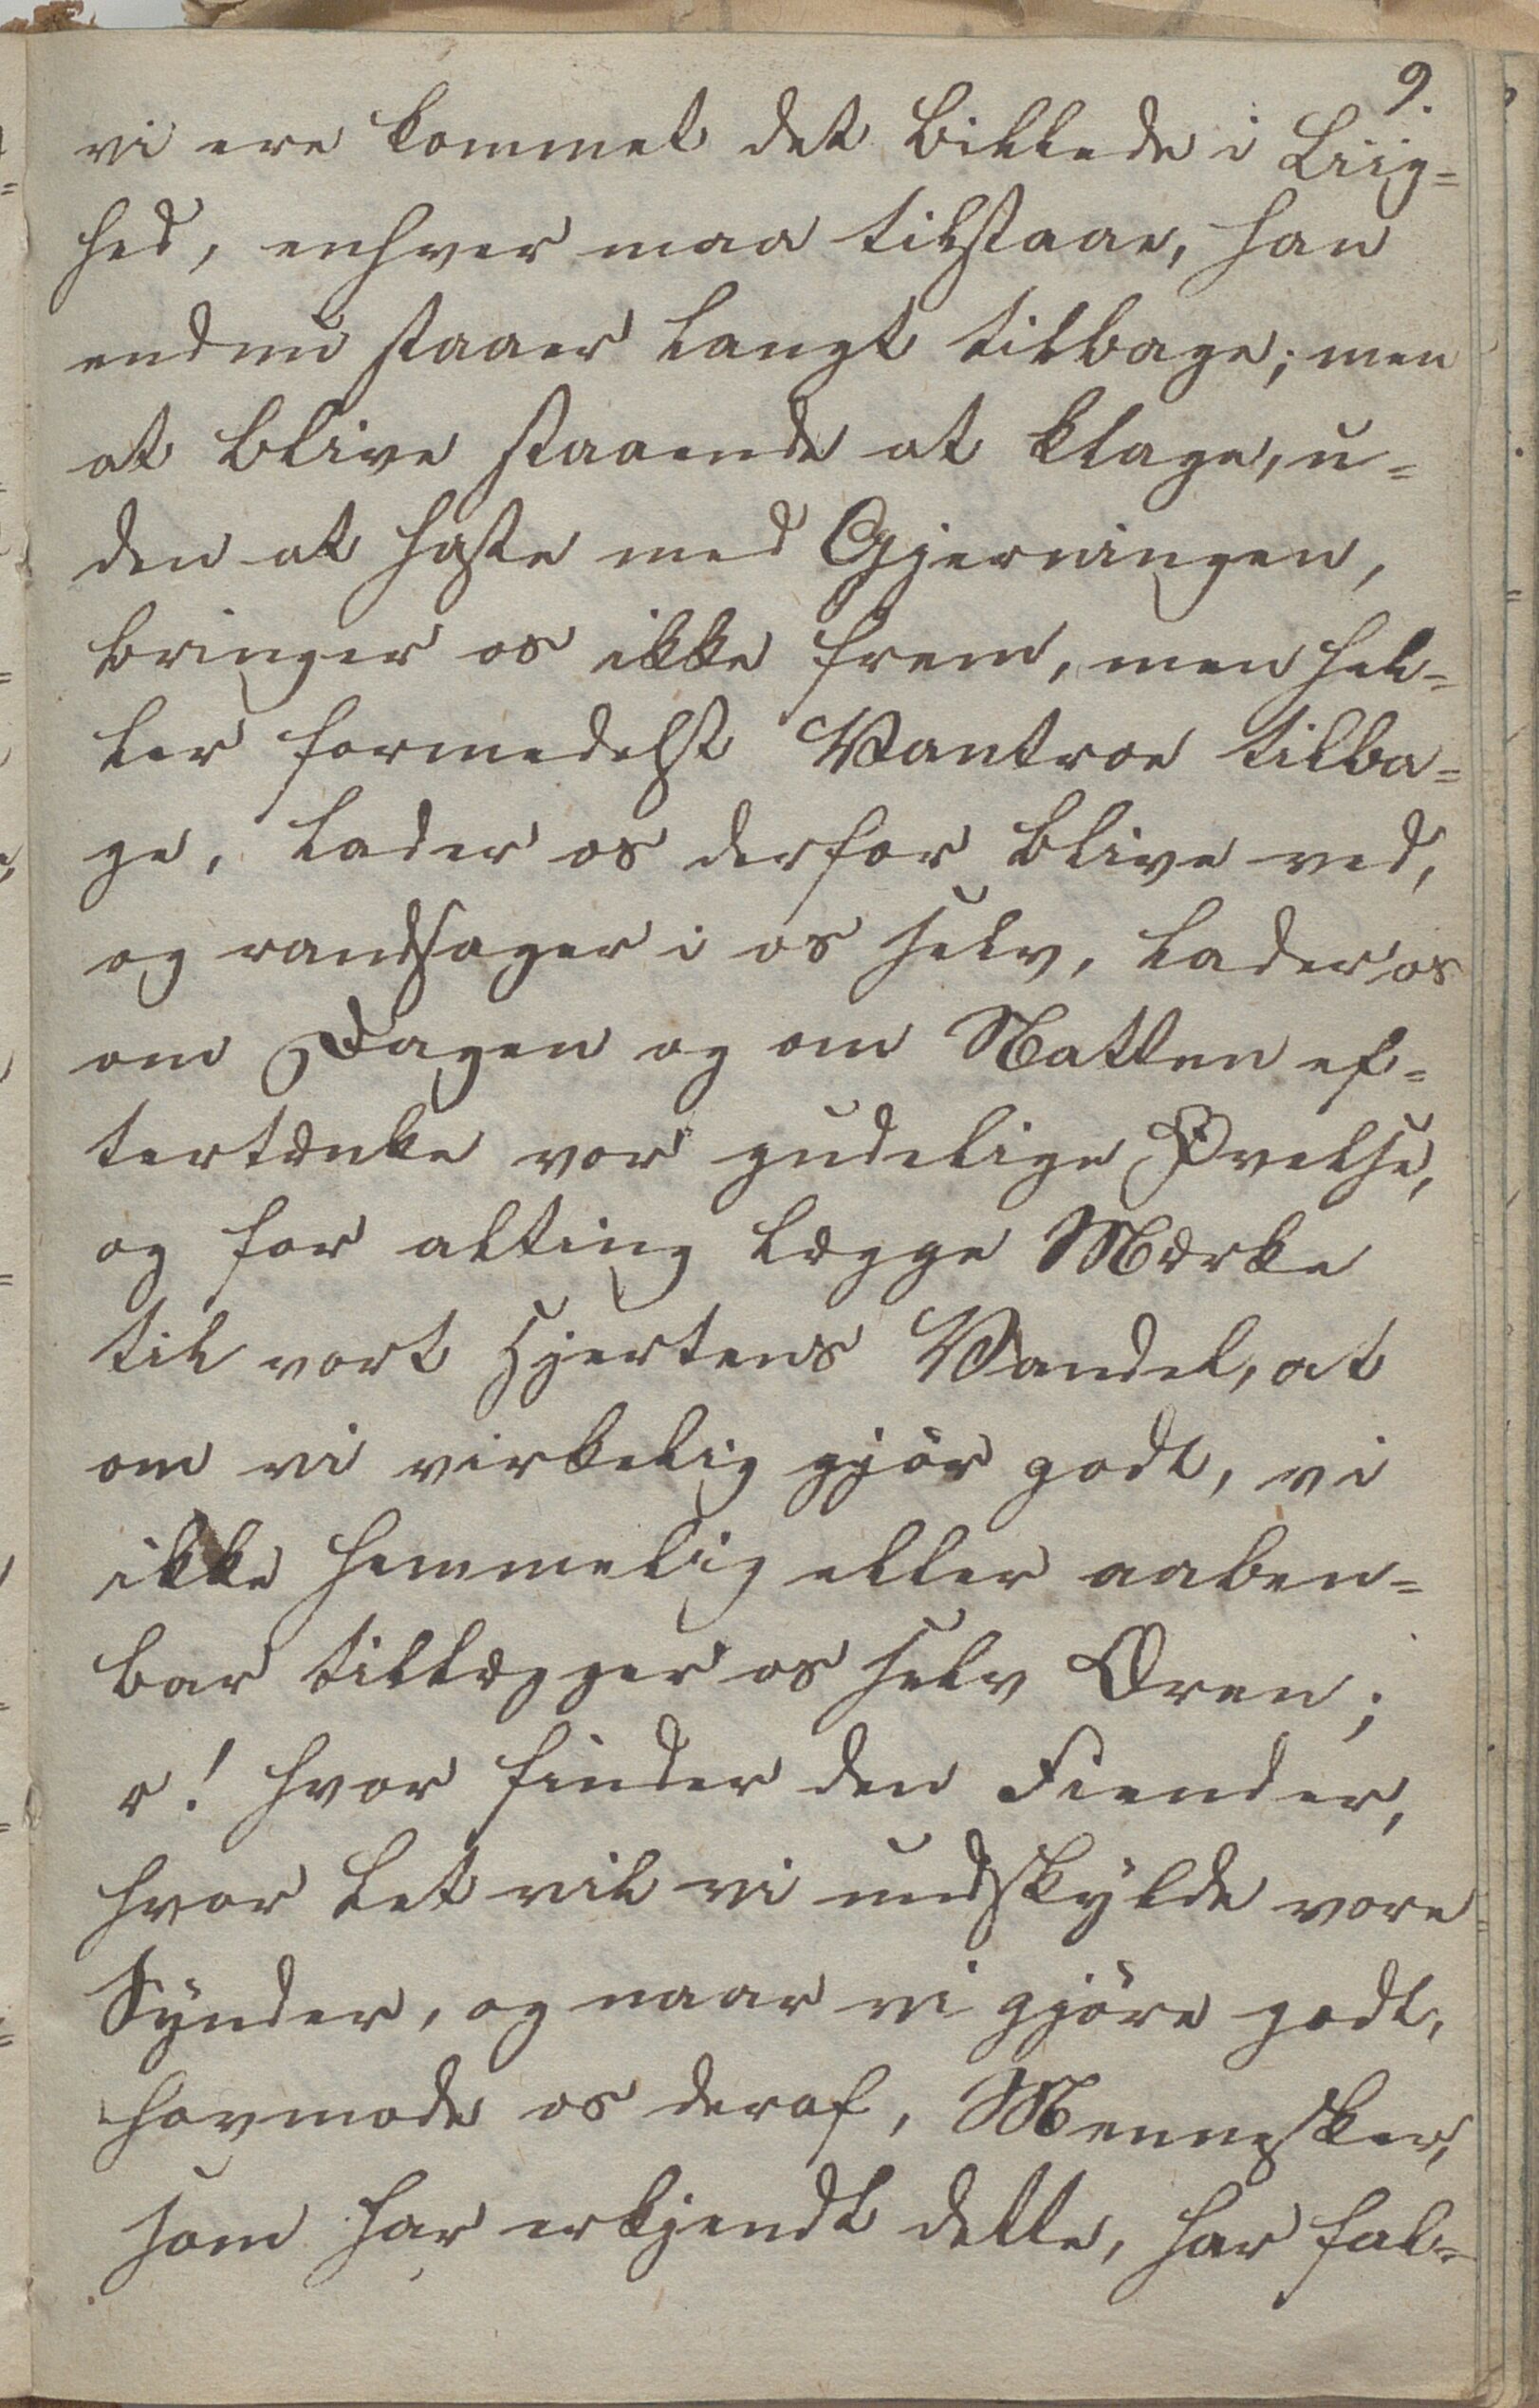 9.
vi ere kommet det Billede i Liig=
hed, enhver maa tilstaae, han
endnu staaer langt tilbage; men
at blive staaende at klage, u=
den at haste med Gjerningen,
bringer os ikke frem, men hel=
ler formedelst Vantroe tilba=
ge, lader os derfor blive ved,
og randsager i os selv, lader os
om Dagen og om Natten ef=
tertænke vor gudelige Øvelse,
og for alting lægge Mærke
til vort Hjertens Vandel, at
om vi virkelig gjör godt, vi
ikke hemmelig eller aaben=
bar tillægger os selv Æren;
o! hvor finder den Fiender,
hvor let vil vi undskylde vore
Synder, og naar vi gjöre godt,
hovmode os deraf, Mennesker,
som har erkjendt dette, har fal=